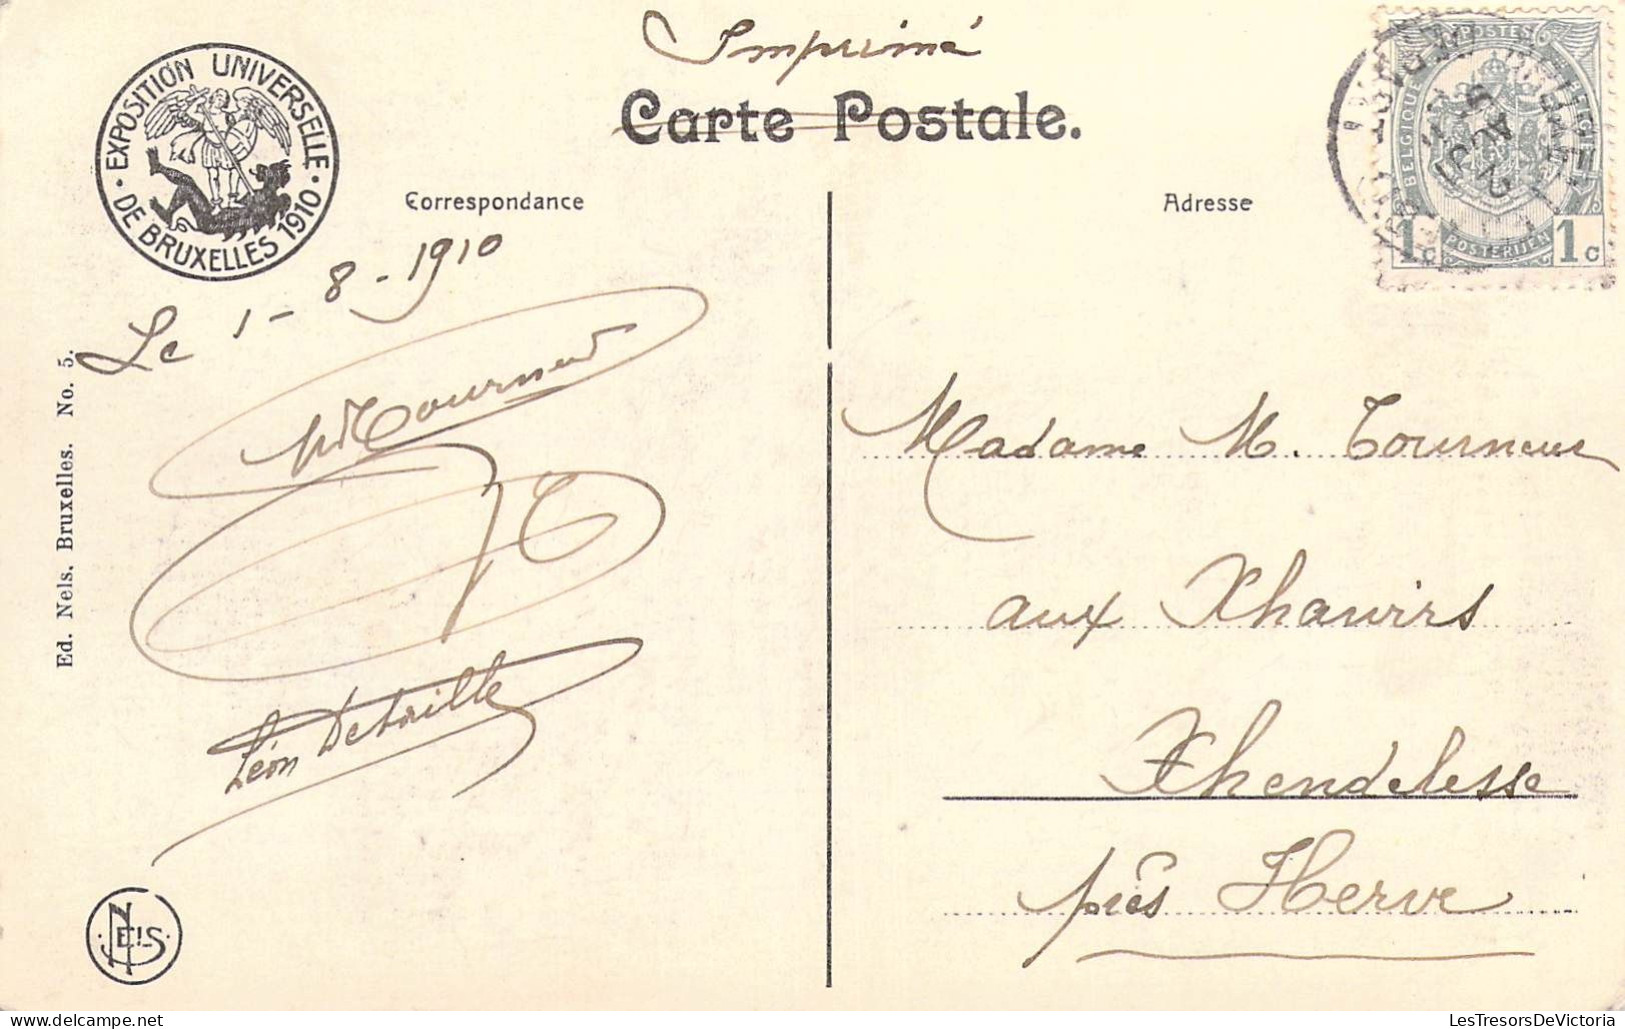 Imprimé
Carte Postale.
EXPOSITION UNIVERSELLE
DE BRUXELLES 1910
Correspondance
Adresse
POSTES
BELGIQUE
BELGIE
1c
POSTERIJEN
1c
Le 1-8-1910
Tourneur
Léon Detaille
Madame M. Tourneur
aux Xhawirs
Xhendelesse
près Herve
Ed. Nels. Bruxelles. No. 5.
NELS
LesTresorsDeVictoria